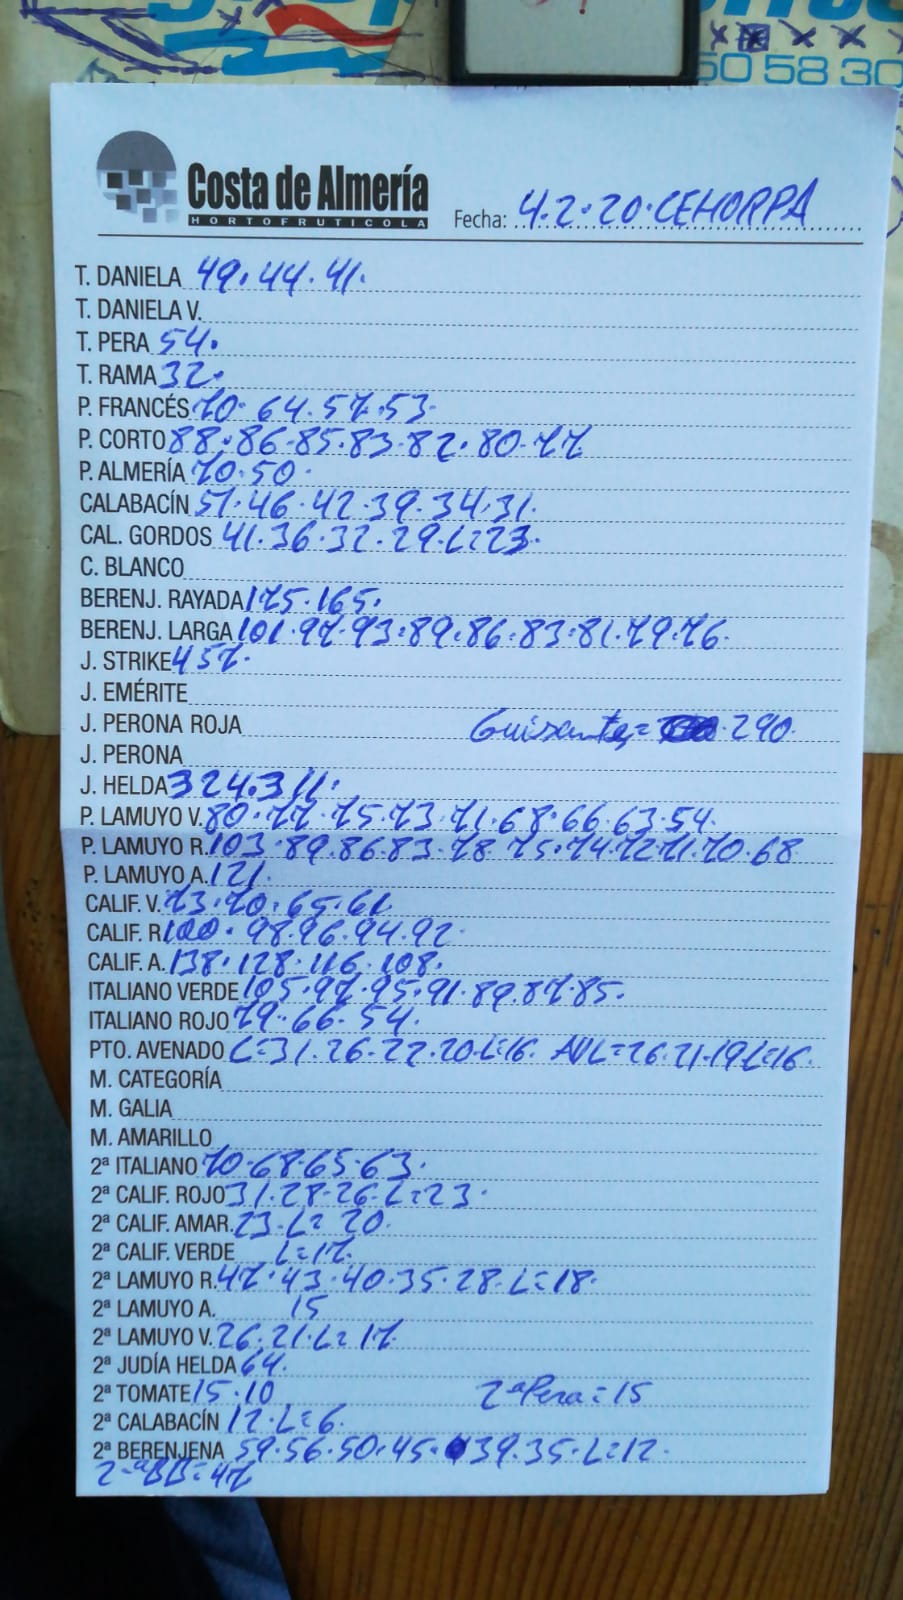 50 58 30
Costa de Almería
HORTOFRUTICOLA
Fecha: 4.2.20.CEHORPA
T. DANIELA 49.44.41.
T. DANIELA V.
T. PERA 54.
T. RAMA 32.
P. FRANCÉS 70.64.57.53.
P. CORTO 88.86.85.83.82.80.77
P. ALMERÍA 70.50.
CALABACÍN 51.46.42.39.34.31.
CAL. GORDOS 41.36.32.29.L=23.
C. BLANCO
BERENJ. RAYADA 175.165.
BERENJ. LARGA 101.97.93.89.86.83.81.79.76.
J. STRIKE 457.
J. EMÉRITE
J. PERONA ROJA Guisante= 290.
J. PERONA
J. HELDA 324.311.
P. LAMUYO V. 80.77.75.73.71.68.66.63.54.
P. LAMUYO R. 103.89.86.83.78.75.74.72.71.70.68
P. LAMUYO A. 121.
CALIF. V. 73.70.65.61.
CALIF. R. 100.98.96.94.92.
CALIF. A. 138.128.116.108.
ITALIANO VERDE 105.97.95.91.89.87.85.
ITALIANO ROJO 79.66.54.
PTO. AVENADO L=31.26.22.20.L=16. AVL=26.21.19L=16.
M. CATEGORÍA
M. GALIA
M. AMARILLO
2ª ITALIANO 70.68.65.63.
2ª CALIF. ROJO 31.28.26.L=23.
2ª CALIF. AMAR. 23.L=20.
2ª CALIF. VERDE L=17.
2ª LAMUYO R. 47.43.40.35.28.L=18.
2ª LAMUYO A. 15
2ª LAMUYO V. 26.21.L=17.
2ª JUDÍA HELDA 64.
2ª TOMATE 15.10 2ªPera=15
2ª CALABACÍN 12.L=6.
2ª BERENJENA 59.56.50.45.39.35.L=12.
2-ªBB=47